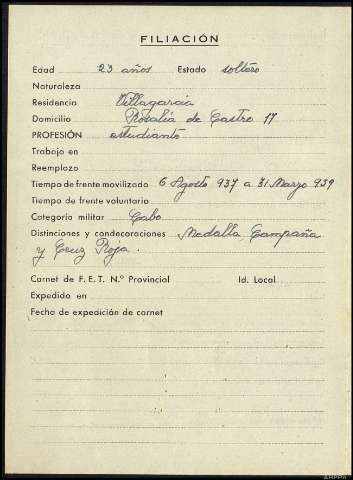 FILIACIÓN
Edad 23 años Estado soltero
Naturaleza
Residencia Villagarcia
Domicilio Rosalia de Castro 17
PROFESIÓN estudiante
Trabajo en
Reemplazo
Tiempo de frente movilizado 6 Agosto 937 a 31 Marzo 939
Tiempo de frente voluntario
Categoría militar Cabo
Distinciones y condecoraciones Medalla Campaña
y Cruz Roja.
Carnet de F. E. T. N.º Provincial Id. Local
Expedido en
Fecha de expedición de carnet
AHPPO